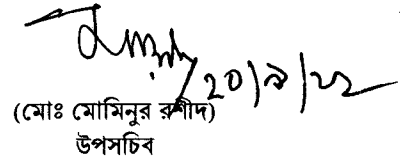 ২০/৯/২২
(মোঃ মোমিনুর রশীদ)
উপসচিব